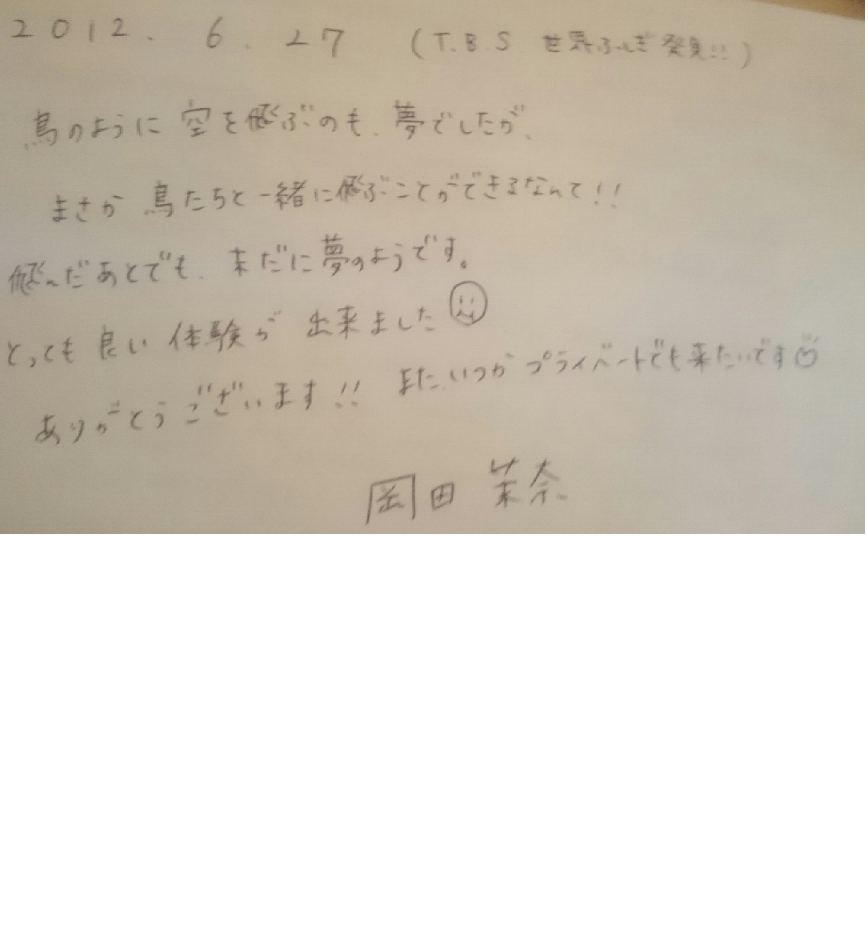 2012. 6. 27 (T.B.S. 世界ふしぎ発見!!)
鳥のように空を飛ぶのも、夢でしたが、
まさか鳥たちと一緒に飛ぶことができるなんて!!
飛んだあとでも、未だに夢のようです。
とっても良い体験が出来ました
ありがとうございます!! また、いつかプライベートでも来たいです
岡田 茉奈